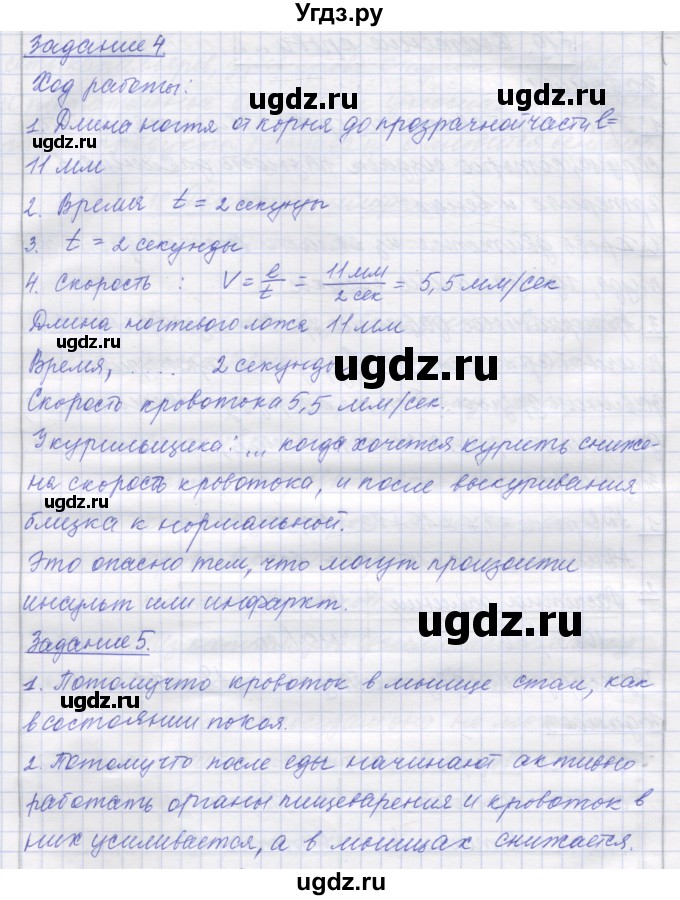 Угдз.ру
Задание 4
Ход работы:
1. Длина ногтя от корня до прозрачной части l=
11 мм
2. Время t = 2 секунды
3. t = 2 секунды
4. Скорость : V = l/t = 11 мм/2 сек = 5,5 мм/сек
Длина ногтевого ложа 11 мм
Время, .... 2 секунды
Скорость кровотока 5,5 мм/сек.
У курильщика: ... когда хочется курить сниже-
на скорость кровотока, и после выкуривания
близка к нормальной.
Это опасно тем, что могут произойти
инсульт или инфаркт.
Задание 5.
1. Потому что кровоток в мышце стал, как
в состоянии покоя.
2. Потому что после еды начинают активно
работать органы пищеварения и кровоток в
них усиливается, а в мышцах снижается.
ugdz.ru
ugdz.ru
ugdz.ru
ugdz.ru
ugdz.ru
ugdz.ru
ugdz.ru
ugdz.ru
ugdz.ru
ugdz.ru
ugdz.ru